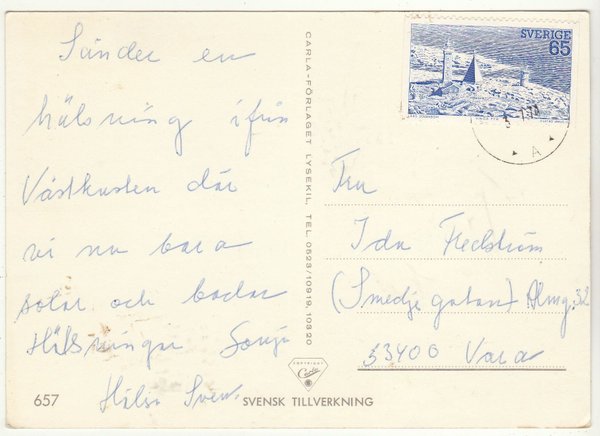 Sänder en
hälsning ifrån
Västkusten där
vi nu bara
solar och badar
Hälsningar Sonja
Hälsa Sven.
657
SVENSK TILLVERKNING
CARLA-FÖRLAGET LYSEKIL, TEL 0523/10919, 10320
COPYRIGHT
Carla
SVERIGE
65
A
Fru
Ida Fledström
(Smedjegatan) Almg. 32
53400 Vara